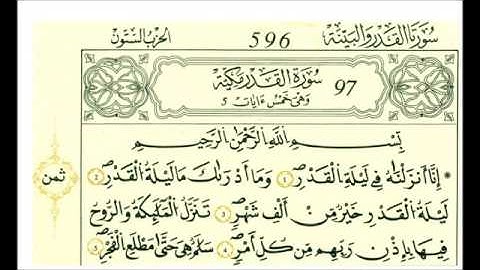 سورتا القدر والبينة 596 الحزب الستون
سورة القدر مكية 97
وهي خمس ءايات 5
بِسْمِ اللَّهِ الرَّحْمَٰنِ الرَّحِيمِ
ثمن
* إِنَّا أَنزَلْنَٰهُ فِي لَيْلَةِ الْقَدْرِ 1 وَمَا أَدْرَىٰكَ مَا لَيْلَةُ الْقَدْرِ 2
لَيْلَةُ الْقَدْرِ خَيْرٌ مِّنْ أَلْفِ شَهْرٍ 3 تَنَزَّلُ الْمَلَٰٓئِكَةُ وَالرُّوحُ
فِيهَا بِإِذْنِ رَبِّهِم مِّن كُلِّ أَمْرٍ 4 سَلَٰمٌ هِيَ حَتَّىٰ مَطْلَعِ الْفَجْرِ 5